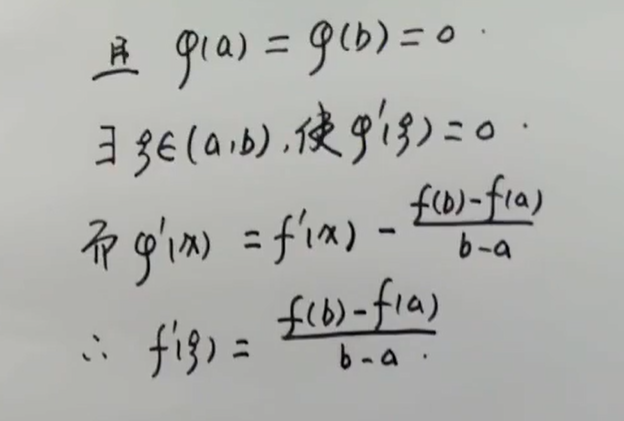 且 φ(a) = φ(b) = 0.
∃ ξ∈(a,b), 使 φ'(ξ) = 0.
而 φ'(x) = f'(x) - \frac{f(b)-f(a)}{b-a}
∴ f'(ξ) = \frac{f(b)-f(a)}{b-a}.